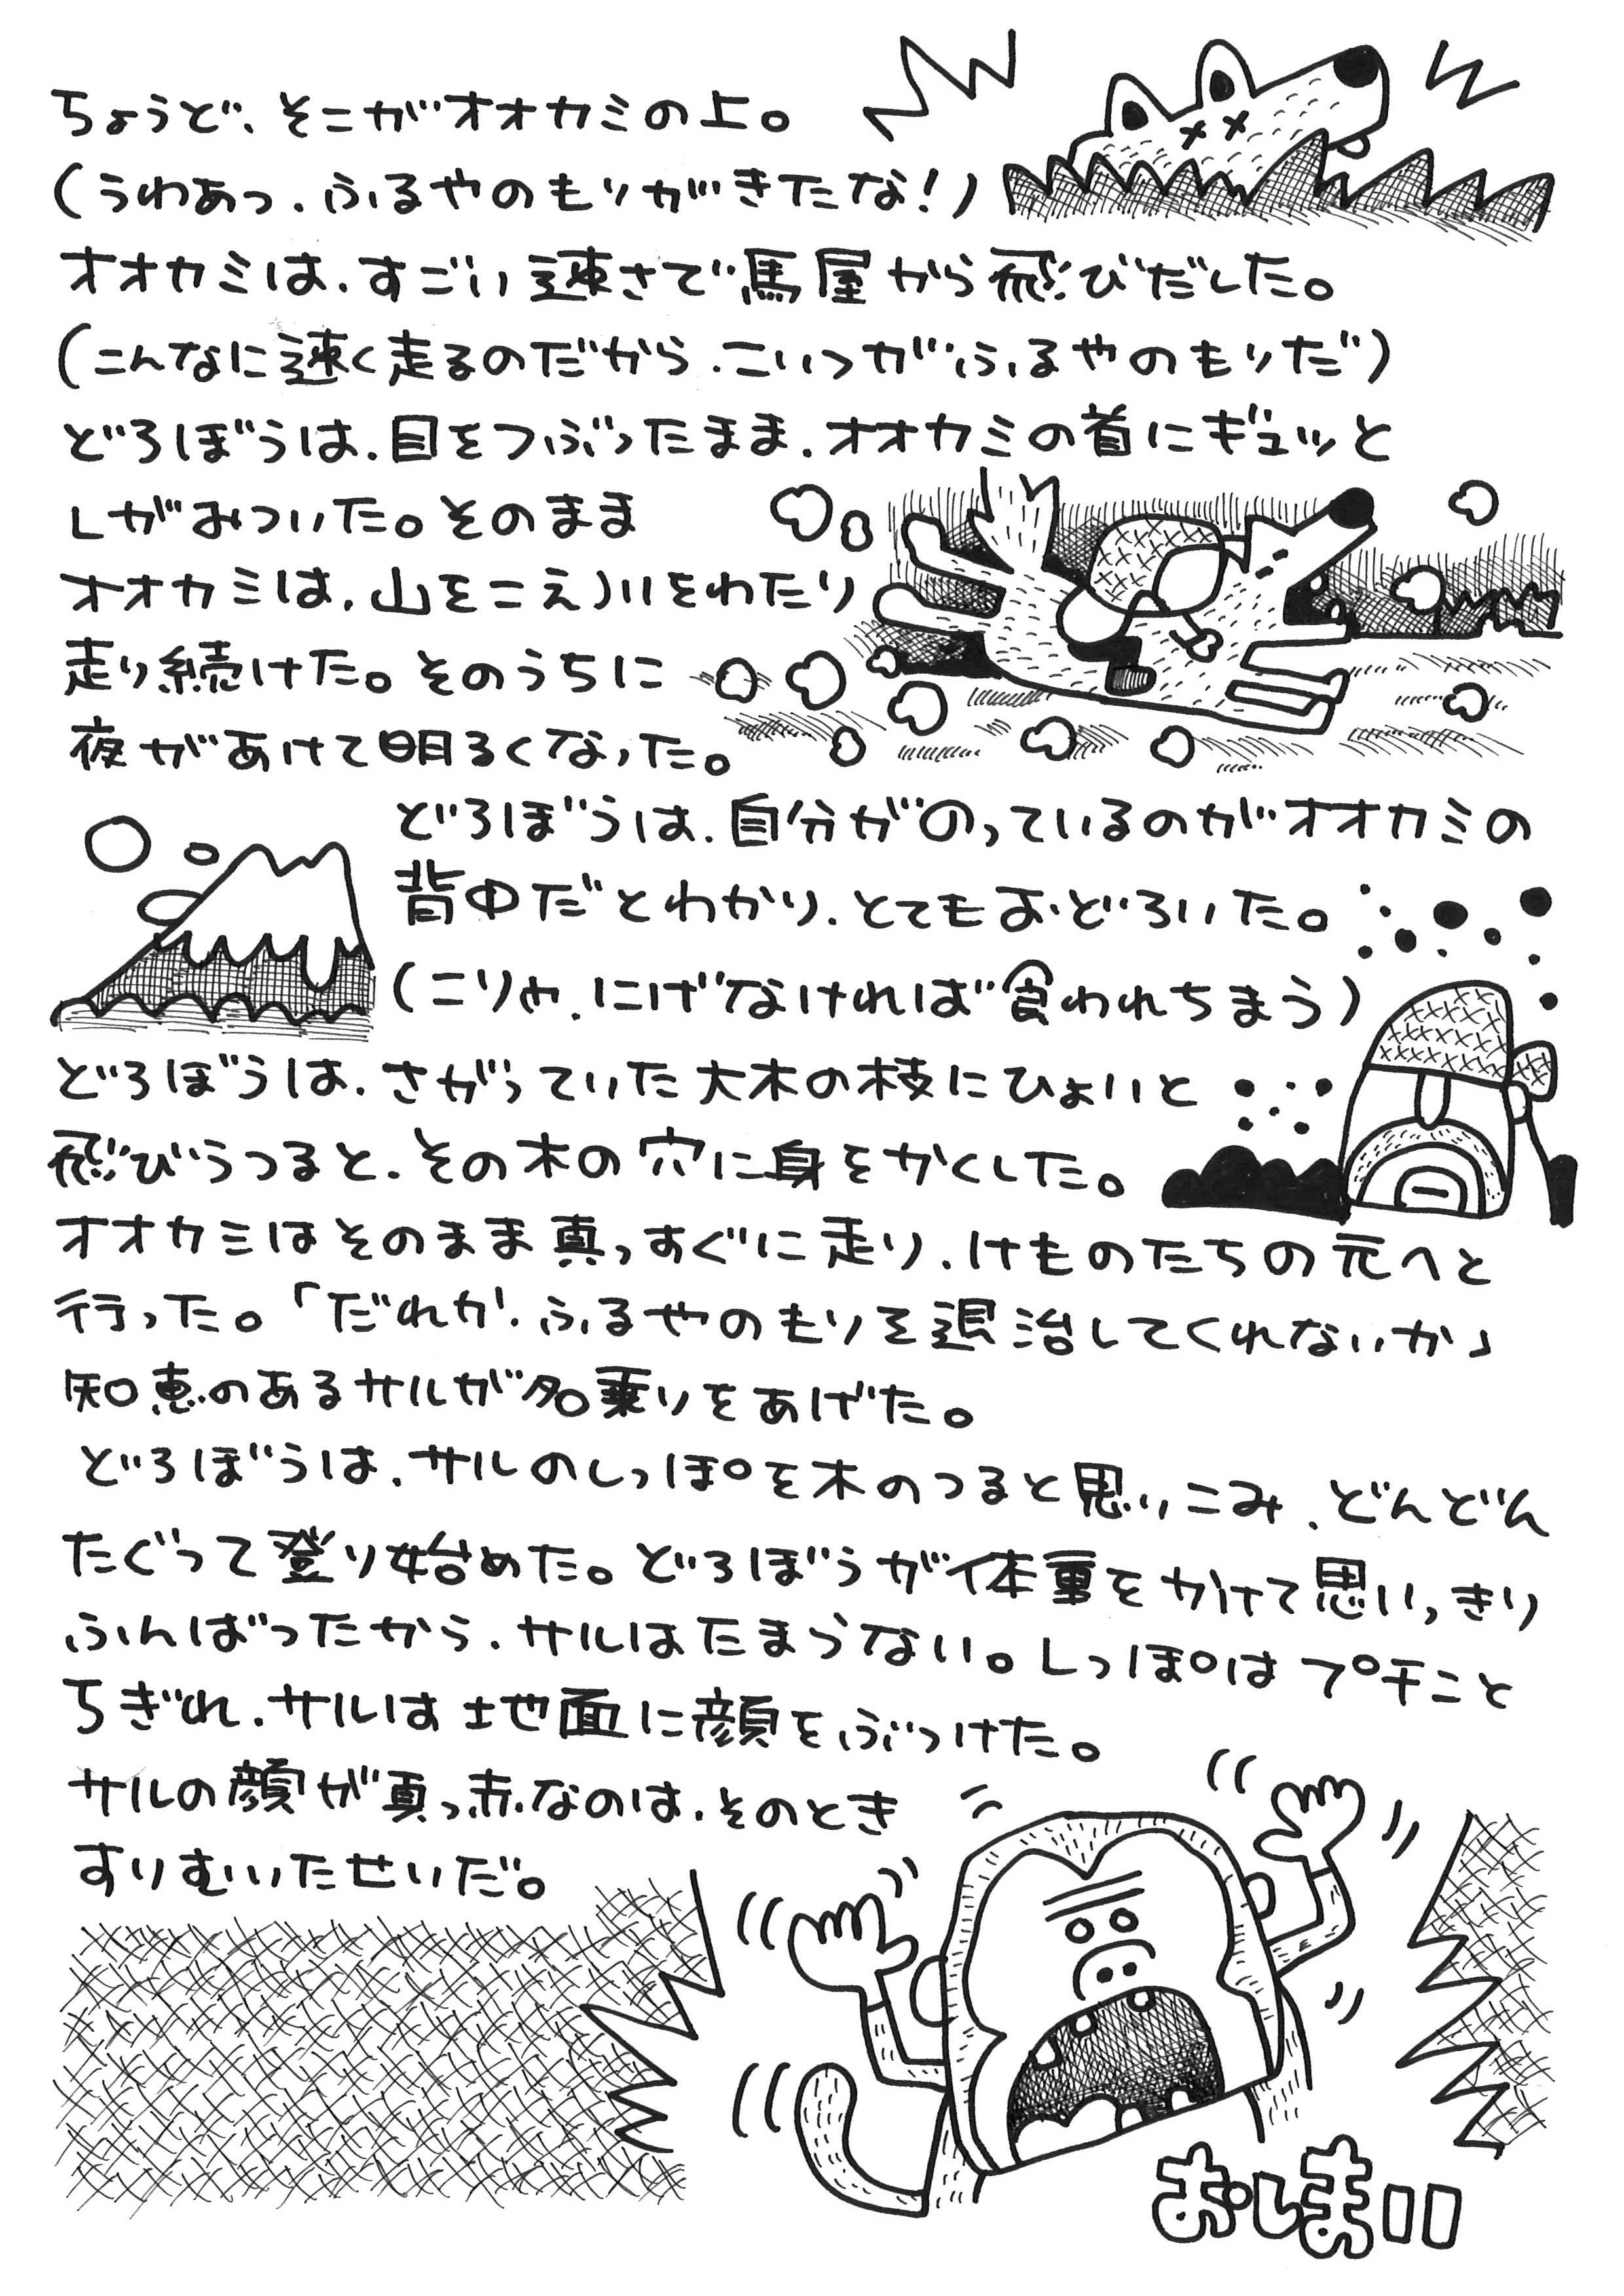 ちょうど、そこがオオカミの上。
(うわあっ、ふるやのもりがきたな!)
オオカミは、すごい速さで馬屋から飛びだした。
(こんなに速く走るのだから、こいつがふるやのもりだ)
どろぼうは、目をつぶったまま、オオカミの首にギュッと
しがみついた。そのまま
オオカミは、山をこえ川をわたり
走り続けた。そのうちに
夜があけて明るくなった。
どろぼうは、自分がのっているのがオオカミの
背中だとわかり、とてもおどろいた。
(こりゃ、にげなければ食われちまう)
どろぼうは、さがっていた大木の枝にひょいと
飛びうつると、その木の穴に身をかくした。
オオカミはそのまま真っすぐに走り、けものたちの元へと
行った。「だれか、ふるやのもりを退治してくれないか」
知恵のあるサルが名乗りをあげた。
どろぼうは、サルのしっぽを木のつると思いこみ、どんどん
たぐって登り始めた。どろぼうが体重をかけて思いっきり
ふんばったから、サルはたまらない。しっぽはプチンと
ちぎれ、サルは地面に顔をぶつけた。
サルの顔が真っ赤なのは、そのとき
すりむいたせいだ。
おしまい